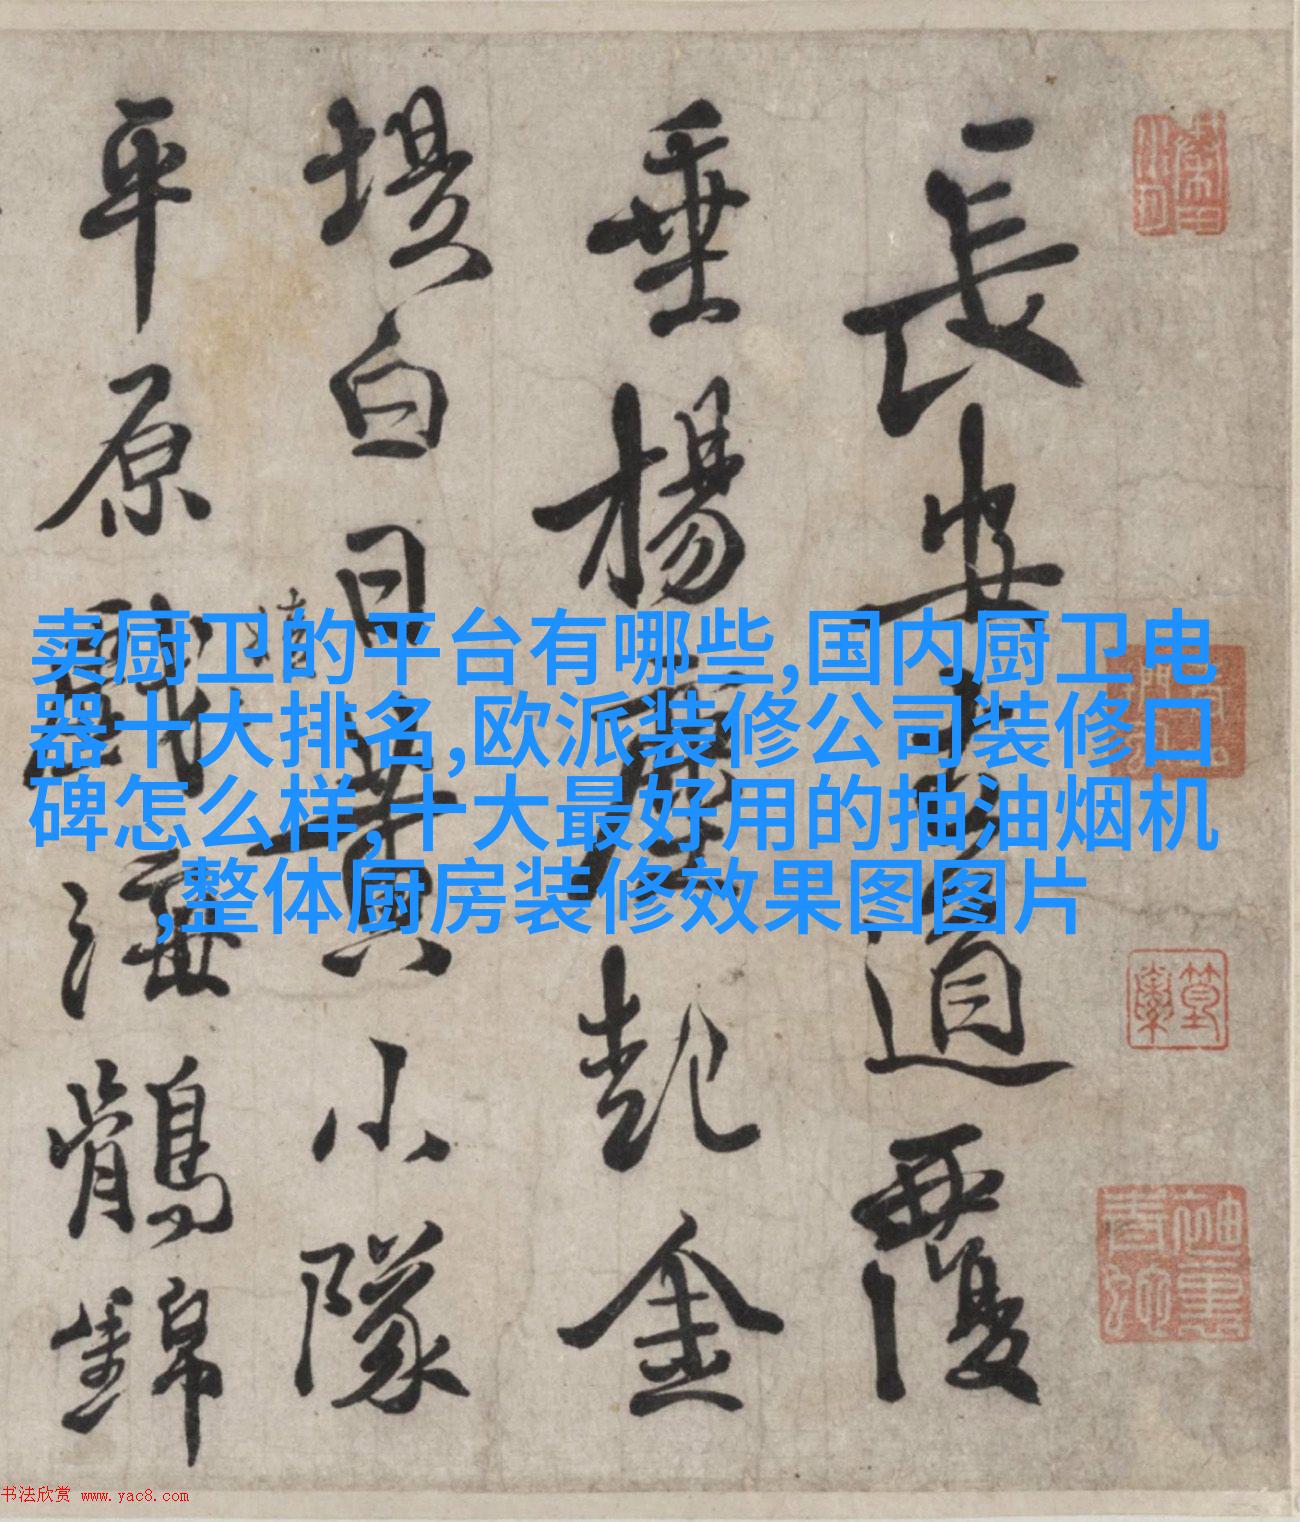 長安古道覆
垂楊塵起金
堤白日黃小隊
平原海鶻錦
卖厨卫的平台有哪些,国内厨卫电
器十大排名,欧派装修公司装修口
碑怎么样,十大最好用的抽油烟机
,整体厨房装修效果图图片
书法欣赏 www.yac8.com